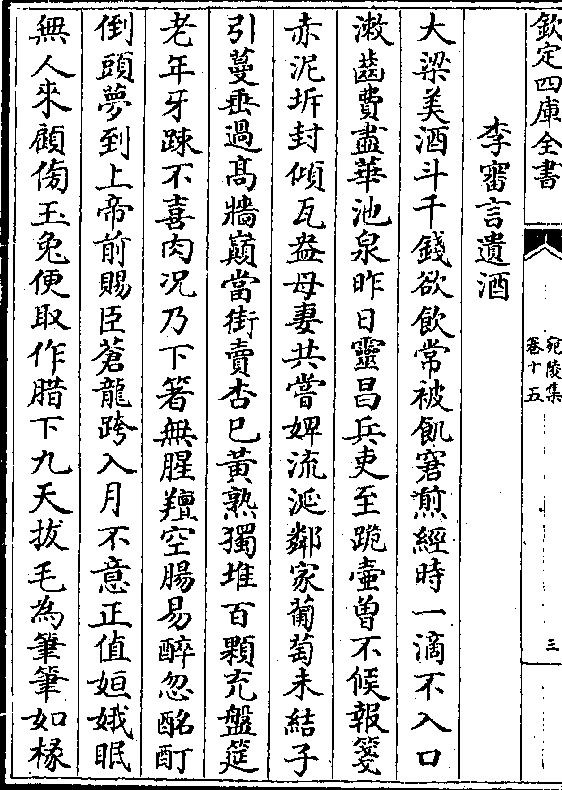 欽定四庫全書
宛陵集
卷十五
三
李審言遺酒
大梁美酒斗千錢欲飲常被飢窘煎經時一滴不入口
漱齒費盡華池泉昨日靈昌兵吏至跪壷曽不候報箋
赤泥坼封傾瓦盎母妻共嘗婢流涎鄰家葡萄未結子
引蔓垂過髙牆巔當街賣杏已黃熟獨堆百顆充盤筵
老年牙踈不喜肉况乃下箸無腥羶空腸易醉忽酩酊
倒頭夢到上帝前賜臣蒼龍跨入月不意正值姮娥眠
無人来顧傍玉兔便取作腊下九天拔毛為筆筆如椽